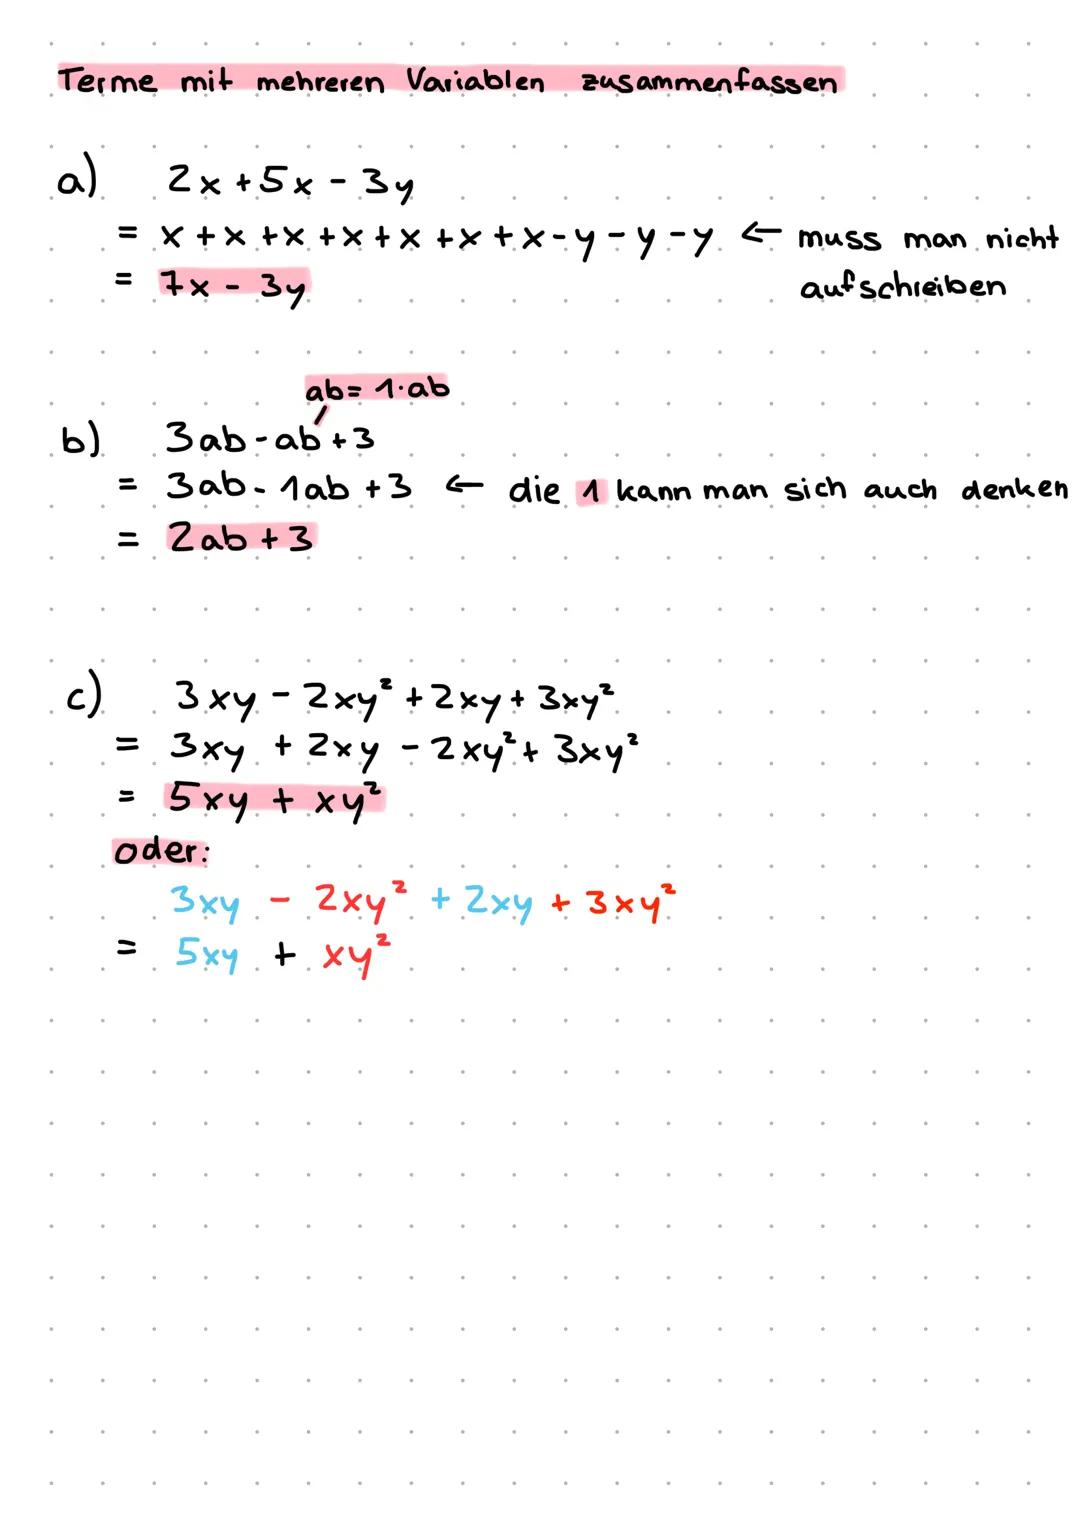 Terme mit mehreren Variablen zusammenfassen
a) 2x + 5x - 3y
= x + x + x + x + x + x + x - y - y - y ← muss man nicht
aufschreiben
= 7x - 3y
ab = 1·ab
b) 3ab - ab + 3
= 3ab - 1ab + 3 ← die 1 kann man sich auch denken
= 2ab + 3
c) 3xy - 2xy² + 2xy + 3xy²
= 3xy + 2xy - 2xy² + 3xy²
= 5xy + xy²
oder:
3xy - 2xy² + 2xy + 3xy²
= 5xy + xy²